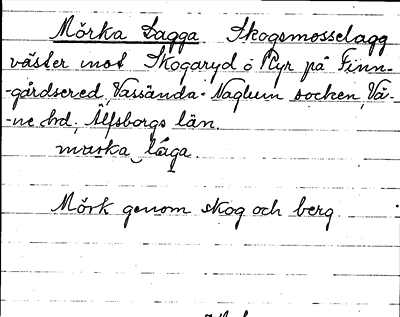 Mörka Lagga Skogsmosselagg
väster mot Skogaryd ö Kyr på Finn-
-gårdsered, Vassända-Naglum socken, Vä-
-ne hd, Älfsborgs län.
marka låga.
Mörk genom skog och berg.